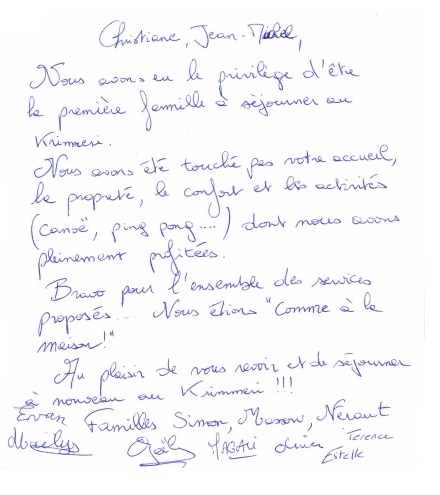 Christiane, Jean-Michel,
Nous avons eu le privilège d'être
la première famille à séjourner au
Krimmeri.
Nous avons été touché par votre accueil,
la propreté, le confort et les activités
(canoë, ping pong....) dont nous avons
pleinement profitées.
Bravo pour l'ensemble des services
proposés... Nous étions "Comme à la
maison!"
Au plaisir de vous revoir et de séjourner
à nouveau au Krimmeri !!!
Evan Familles Simon, Masson, Neraut
Maëlys Gaël MAGALI Olivier Terence
Estelle